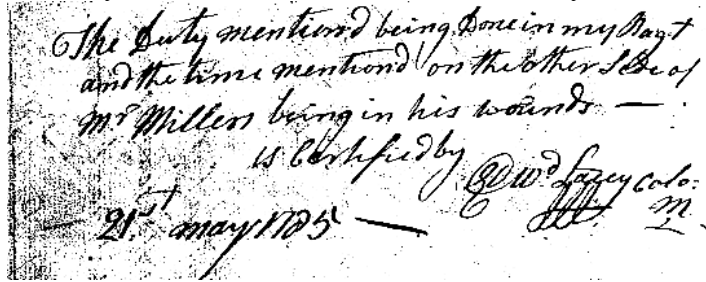 The Duty mention'd being Done in my Rag.t
and the time mention'd on the other Side of
Mr. Millers being in his wounds —
is Certified by
Edwd. Lacey Colo:
M
— 21.st may 1785 —